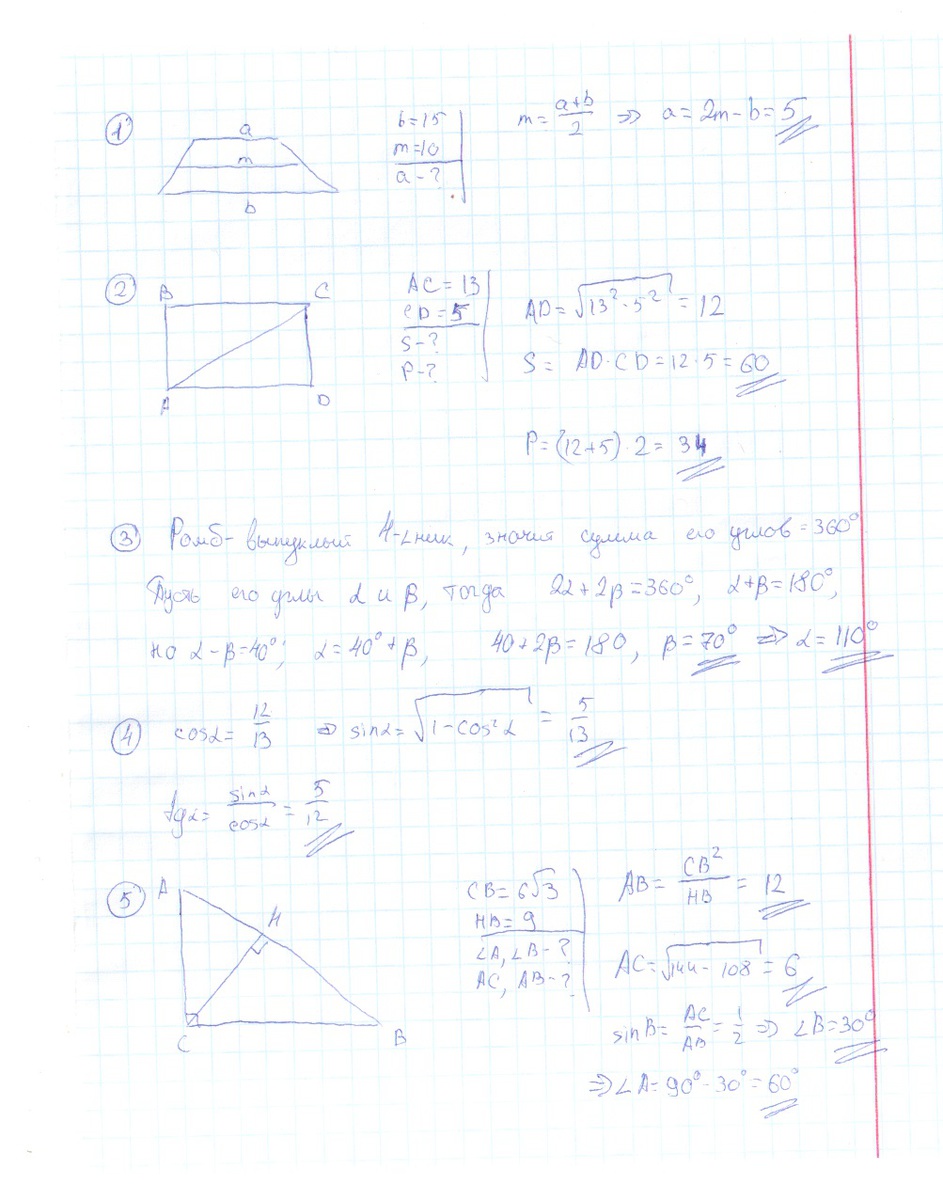 1
a
m
b
b=15
m=10
a-?
m = (a+b)/2 => a = 2m - b = 5
2
B C
A D
AC = 13
CD = 5
S-?
P-?
AD = √(13² - 5²) = 12
S = AD·CD = 12·5 = 60
P = (12+5)·2 = 34
3 Ромб - выпуклый 4-∠ник, значит сумма его углов = 360°
Пусть его углы α и β, тогда 2α + 2β = 360°, α+β = 180°,
но α - β = 40°; α = 40° + β, 40 + 2β = 180, β = 70° => α = 110°
4 cosα = 12/13 => sinα = √(1 - cos²α) = 5/13
tgα = sinα/cosα = 5/12
5
A
H
C B
CB = 6√3
HB = 9
∠A, ∠B - ?
AC, AB - ?
AB = CB²/HB = 12
AC = √(144 - 108) = 6
sinB = AC/AB = 1/2 => ∠B = 30°
=> ∠A = 90° - 30° = 60°